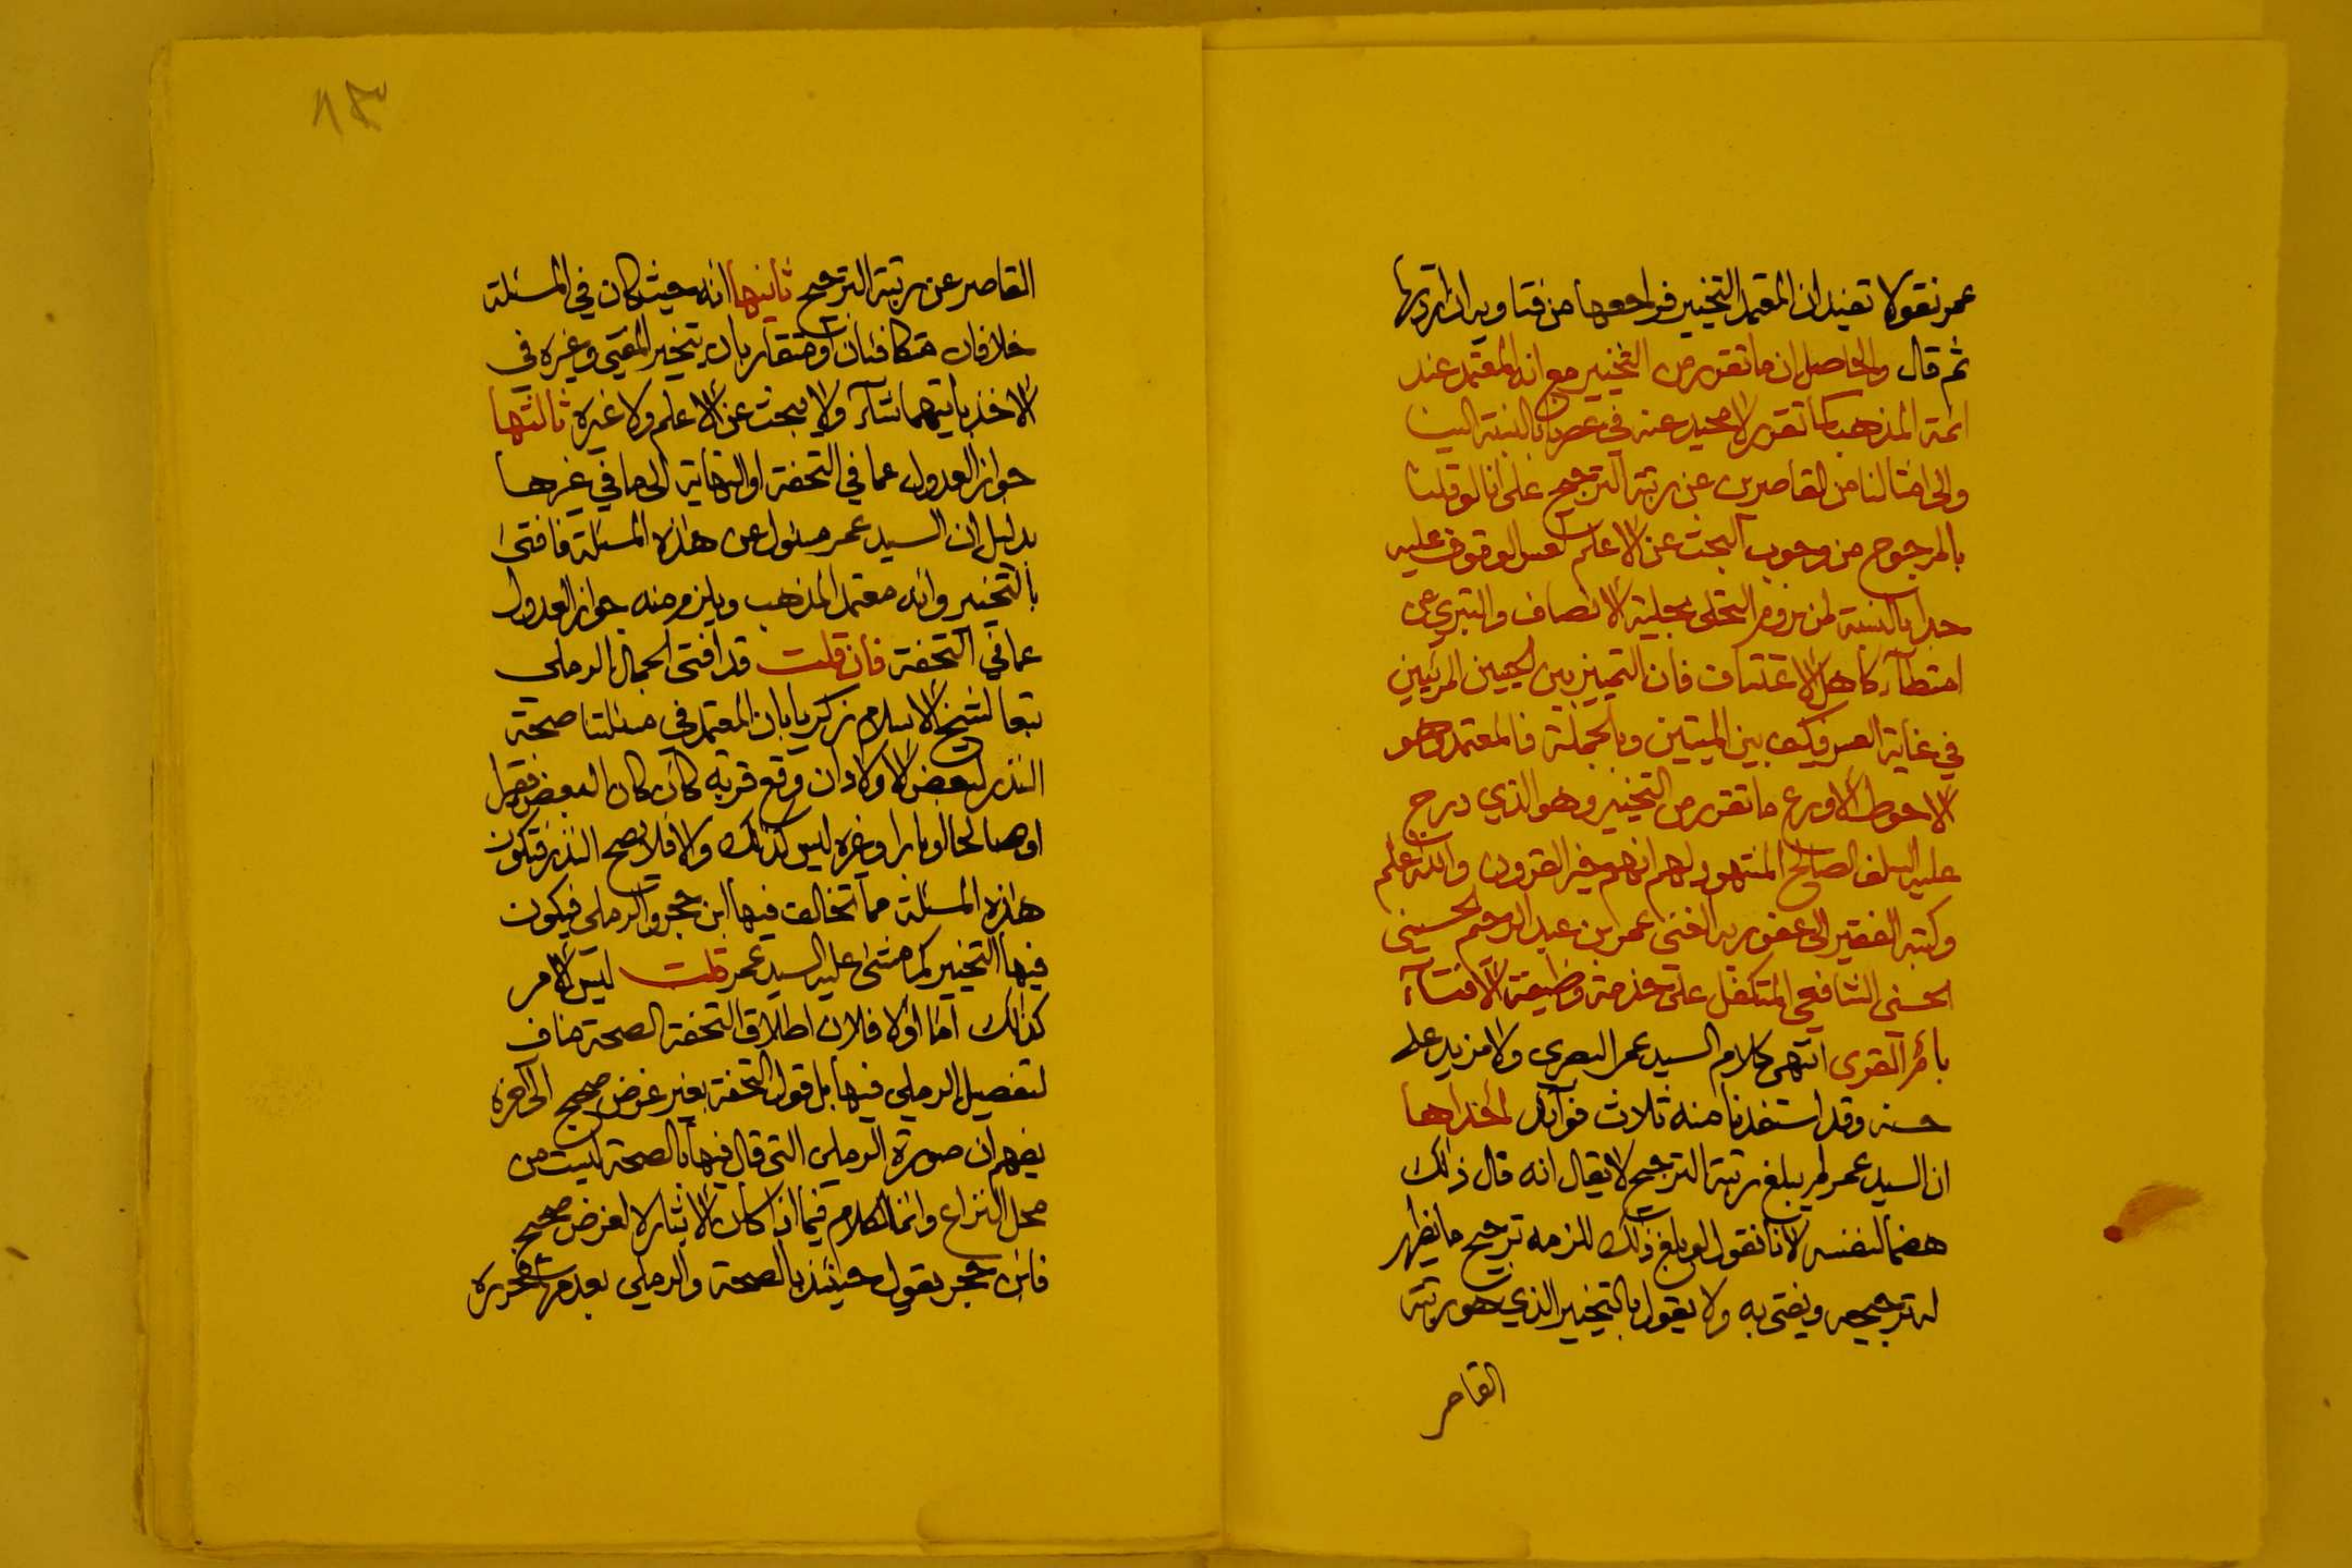 عمر نقولا تفيد ان المعتمد التخيير فراجعها من فتاويه ان اردتها
ثم قال والحاصل ان ما تقرر من التخيير مع انه المعتمد عند
ائمة المذهب كما تقرر لا محيد عنه في عصرنا بالنسبة الينا
والى امثالنا من القاصرين عن رتبة الترجيح على انا لو قلنا
بالمرجوح من وجوب البحث عن الاعلم لعسر الوقوف عليه
جدا بالنسبة لمن يروم التحلى بحلية الانصاف والتبري عن
امتطآء كاهل الاعتساف فان التمييز بين الحيين المرئيين
في غاية العسر فكيف بين الميتين وبالجملة فالمعتمد وهو
الاحوط الاورع ما تقرر من التخيير وهو الذي درج
عليه السلف الصالح المشهود لهم انهم خير القرون والله اعلم
وكتبه الفقير الى عفو ربه الغنى عمر بن عبد الرحيم الحسينى
الحسنى الشافعى المتكفل على خدمة وظيفة الافتآء
بأم القرى انتهى كلام السيد عمر البصرى ولا مزيد على
حسنه وقد استفدنا منه ثلاث فوآئد احداها
ان السيد عمر لم يبلغ رتبة الترجيح لا يقال انه قال ذلك
هضما لنفسه لانا نقول لو بلغ ذلك للزمه ترجيح ما يظهر
له ترجيحه ويفتى به ولا يقول بالتخيير الذي هو رتبة
القاصر
١٨٣
القاصر عن رتبة الترجيح ثانيها انه حيث كان في المسئلة
خلافان متكافئان او متقاربان يتخير المفتى وغيره في
الاخذ بايهما شآء ولا يبحث عن الاعلم ولا غيره ثالثها
جواز العدول عما في التحفة او النهاية الى ما في غيرها
بدليل ان السيد عمر مسئول عن هذه المسئلة فافتى
بالتخيير وانه معتمد المذهب ويلزم منه جواز العدول
عما في التحفة فان قلت قد افتى الجمال الرملى
تبعا لشيخ الاسلام زكريا بان المعتمد في مسئلتنا صحة
النذر لبعض الاولاد ان وقع قربة كأن كان البعض فقيرا
او صالحا او بارا وغيره ليس كذلك والا فلا يصح النذر فتكون
هذه المسئلة مما تخالف فيها ابن حجر والرملى فيكون
فيها التخيير كما مشى عليه السيد عمر قلت ليس الامر
كذلك اما اولا فلان اطلاق التحفة الصحة مناف
لتفصيل الرملي فيها بل قول التحفة بغير غرض صحيح الى آخره
يفهم ان صورة الرملى التى قال فيها بالصحة ليست من
محل النزاع وانما الكلام فيما اذا كان الايثار لا لغرض صحيح
فابن حجر يقول حينئذ بالصحة والرملي بعدمها